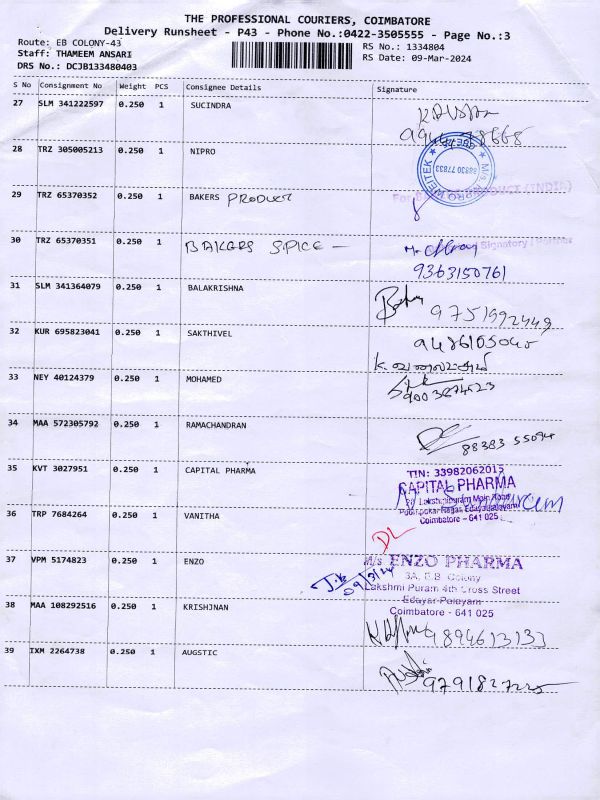 THE PROFESSIONAL COURIERS, COIMBATORE
Delivery Runsheet - P43 - Phone No.:0422-3505555 - Page No.:3
Route: EB COLONY-43
Staff: THAMEEM ANSARI
DRS No.: DCJB133480403
RS No.: 1334804
RS Date: 09-Mar-2024
S No Consignment No Weight PCS Consignee Details Signature
27 SLM 341222597 0.250 1 SUCINDRA
28 TRZ 305005213 0.250 1 NIPRO
29 TRZ 65370352 0.250 1 BAKERS PRODUCT
30 TRZ 65370351 0.250 1 BAKERS SPICE —
9363150761
31 SLM 341364079 0.250 1 BALAKRISHNA
9751992449
32 KUR 695823041 0.250 1 SAKTHIVEL
33 NEY 40124379 0.250 1 MOHAMED
34 MAA 572305792 0.250 1 RAMACHANDRAN
88383 55094
35 KVT 3027951 0.250 1 CAPITAL PHARMA
TIN: 33982062015
CAPITAL PHARMA
Coimbatore - 641 025
36 TRP 7684264 0.250 1 VANITHA
DL
37 VPM 5174823 0.250 1 ENZO
09/3/24
M/s ENZO PHARMA
3A, E.B. Colony
Lakshmi Puram 4th Cross Street
Edayar Palayam
Coimbatore - 641 025
38 MAA 108292516 0.250 1 KRISHJNAN
9894613233
39 IXM 2264738 0.250 1 AUGSTIC